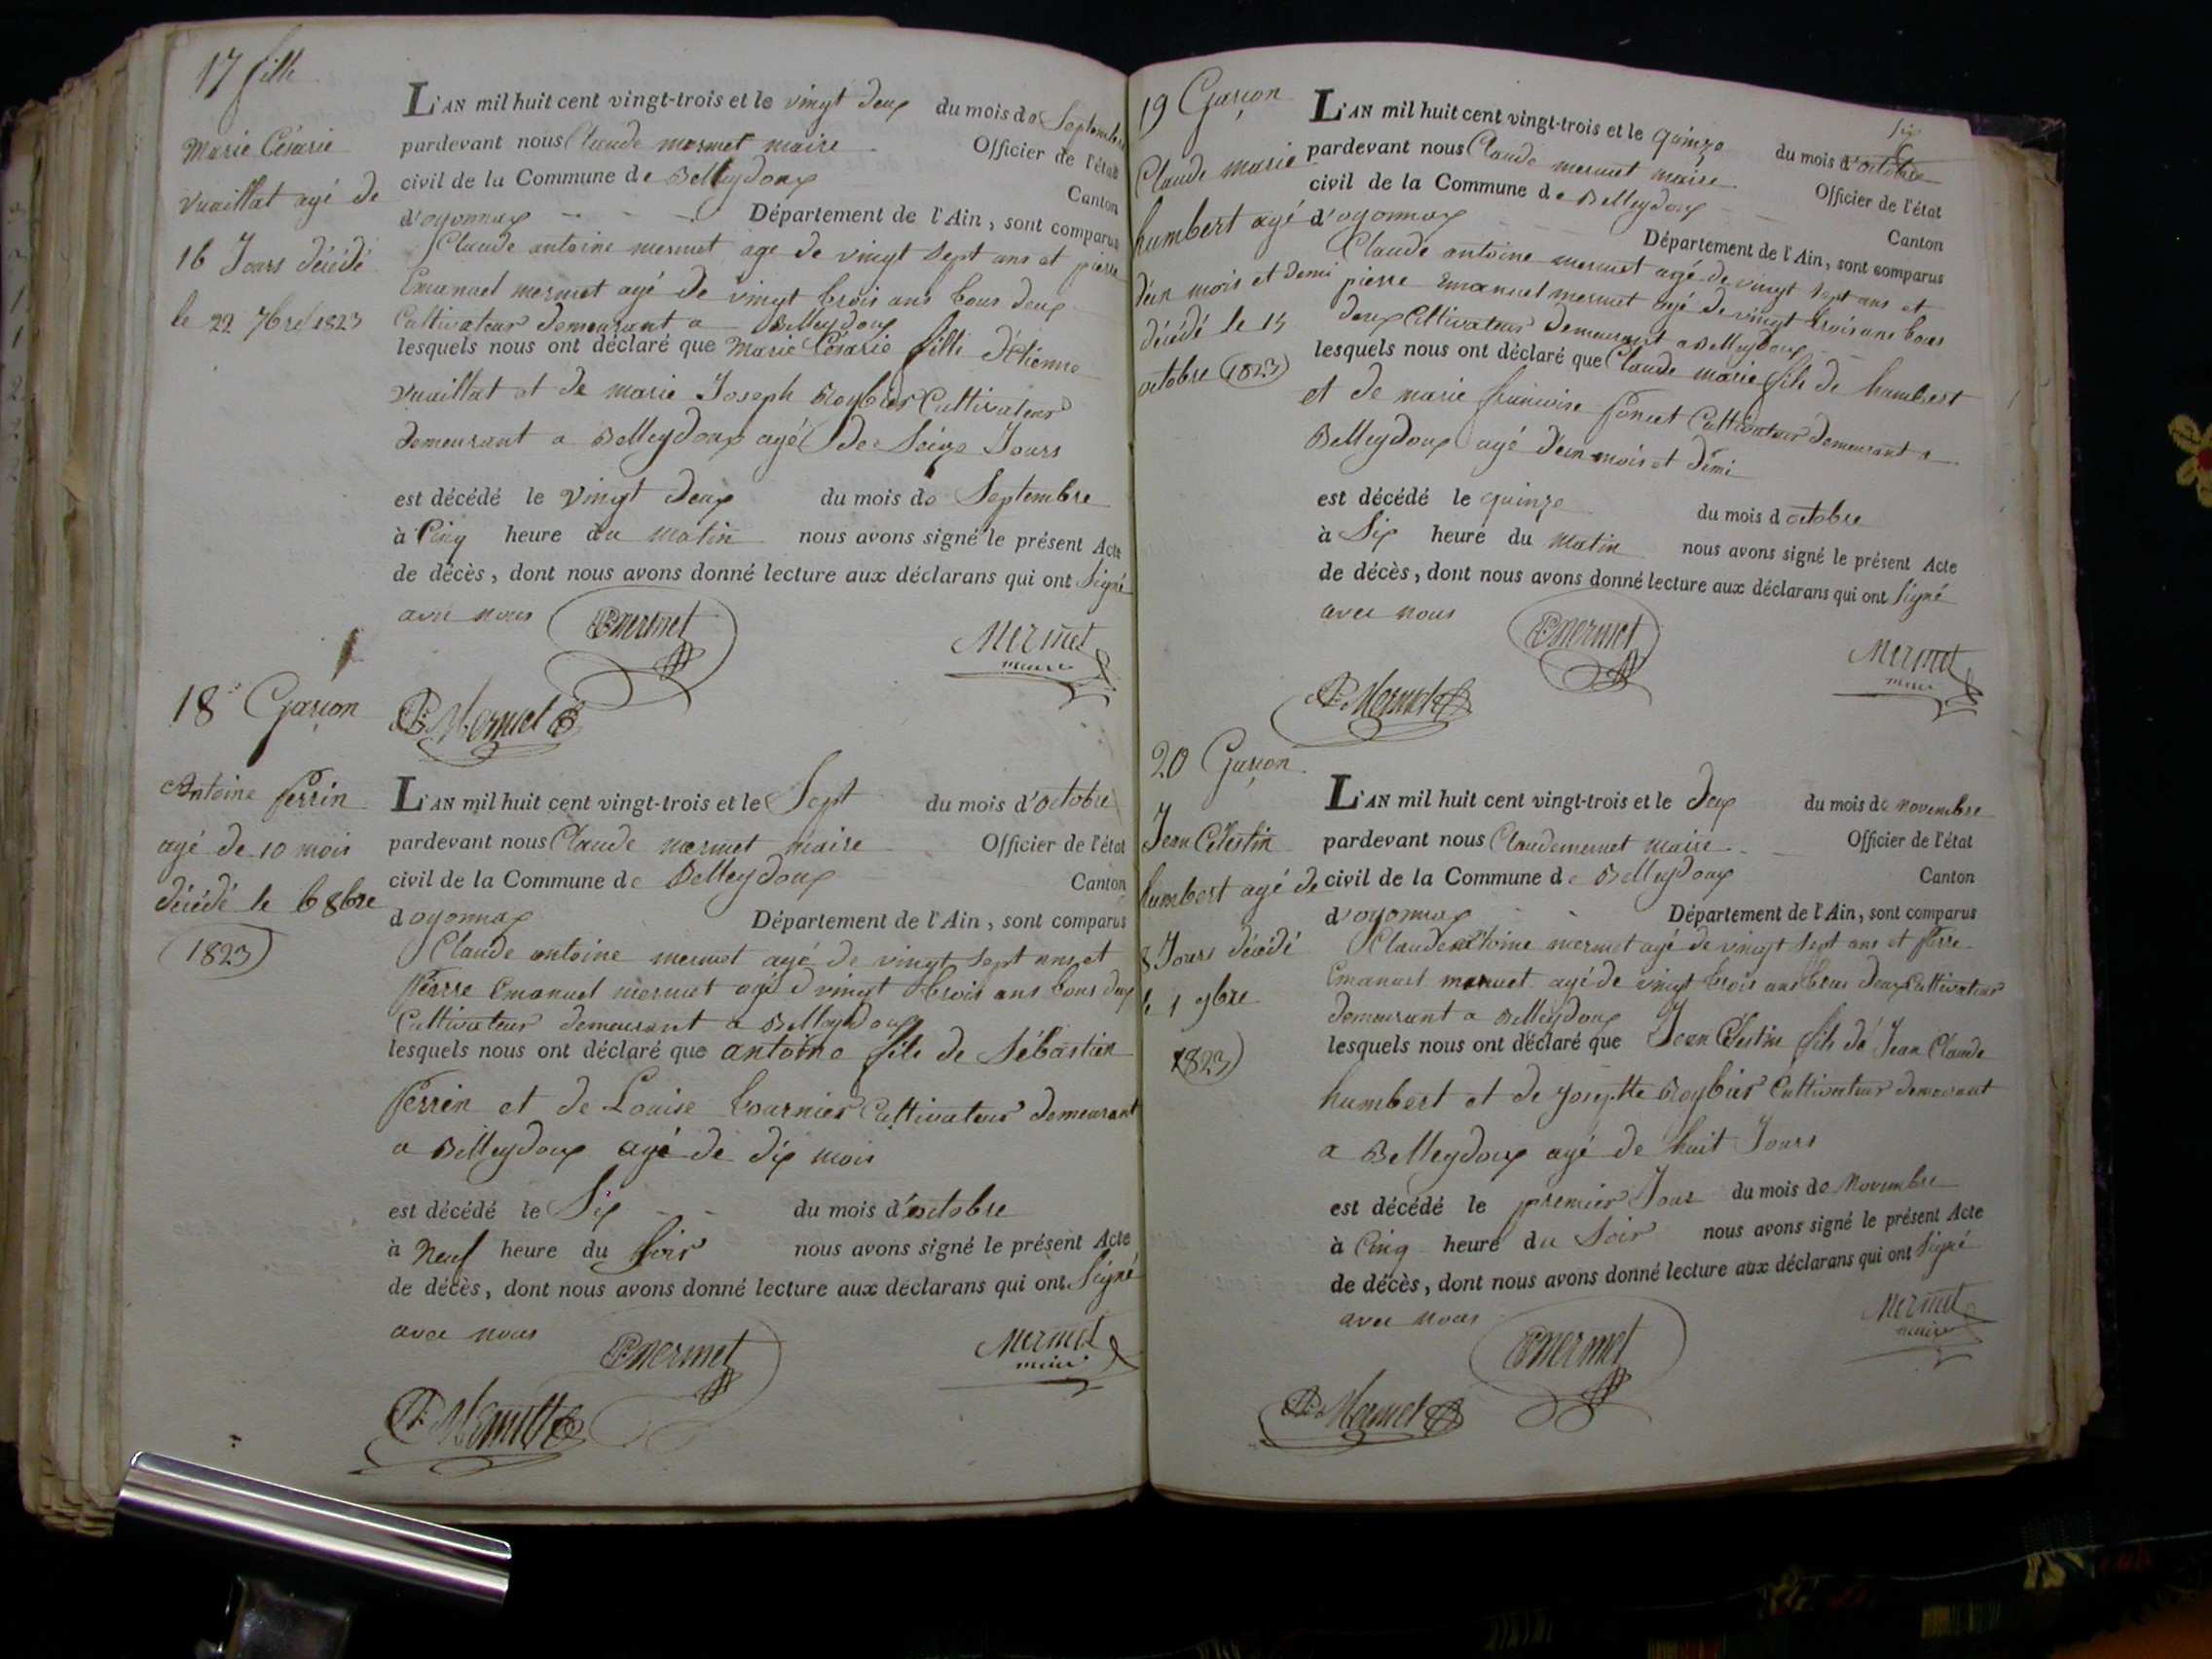 17 fille
Marie Césarie
Vuaillat agé de
16 Jours décédé
le 22 7bre 1823
L'AN mil huit cent vingt-trois et le vingt deux du mois de Septembre
pardevant nous Claude mermet maire Officier de l'état
civil de la Commune de Belleydoux Canton
d'oyonnax Département de l'Ain, sont comparus
Claude antoine mermet age de vingt sept ans et pierre
Emanuel mermet agé de vingt trois ans tous deux
Cultivateur demeurant a Belleydoux
lesquels nous ont déclaré que Marie Césarie fille d'Etienne
Vuaillat et de marie Joseph Roybier Cultivateur
demeurant a Belleydoux agé de Seize Jours
est décédé le Vingt deux du mois de Septembre
à Cinq heure du matin nous avons signé le présent Acte
de décès, dont nous avons donné lecture aux déclarans qui ont Signé
avec nous
mermet
Mermet
maire
Mermet
18 Garçon
Antoine perrin
agé de 10 mois
décédé le 6 8bre
1823
L'AN mil huit cent vingt-trois et le Sept du mois d'octobre
pardevant nous Claude mermet maire Officier de l'état
civil de la Commune de Belleydoux Canton
d oyonnax Département de l'Ain, sont comparus
Claude antoine mermet agé de vingt sept ans et
pierre Emanuel mermet agé d vingt trois ans tous deux
Cultivateur demeurant a Belleydoux
lesquels nous ont déclaré que antoine fils de Sébastien
perrin et de Louise tournier Cultivateur demeurant
a Belleydoux agé de dix mois
est décédé le Six du mois d'octobre
à Neuf heure du Soir nous avons signé le présent Acte
de décès, dont nous avons donné lecture aux déclarans qui ont Signé
avec nous
mermet
Mermet
maire
Mermet
19 Garçon
Claude marie
humbert agé
d'un mois et demi
décédé le 15
octobre 1823
L'AN mil huit cent vingt-trois et le quinze du mois d'octobre
pardevant nous Claude mermet maire Officier de l'état
civil de la Commune de Belleydoux Canton
d'oyonnax Département de l'Ain, sont comparus
Claude antoine mermet agé de vingt sept ans et
pierre Emanuel mermet agé de vingt trois ans tous
deux Cultivateur demeurant a Belleydoux
lesquels nous ont déclaré que Claude marie fils de humbert
et de marie francoise poncet Cultivateur demeurant a
Belleydoux agé d'un mois et demi
est décédé le quinze du mois d octobre
à Six heure du matin nous avons signé le présent Acte
de décès, dont nous avons donné lecture aux déclarans qui ont Signé
avec nous
mermet
Mermet
maire
Mermet
20 Garçon
Jean Célestin
humbert agé de
8 Jours décédé
le 1 9bre
1823
L'AN mil huit cent vingt-trois et le deux du mois de novembre
pardevant nous Claude mermet maire Officier de l'état
civil de la Commune de Belleydoux Canton
d'oyonnax Département de l'Ain, sont comparus
Claude antoine mermet agé de vingt sept ans et pierre
Emanuel mermet agé de vingt trois ans tous deux Cultivateur
demeurant a Belleydoux
lesquels nous ont déclaré que Jean Célestin fils de Jean Claude
humbert et de Josephte Roybier Cultivateur demeurant
a Belleydoux agé de huit Jours
est décédé le premier Jour du mois de Novembre
à Cinq heure du Soir nous avons signé le présent Acte
de décès, dont nous avons donné lecture aux déclarans qui ont Signé
avec nous
mermet
Mermet
maire
Mermet